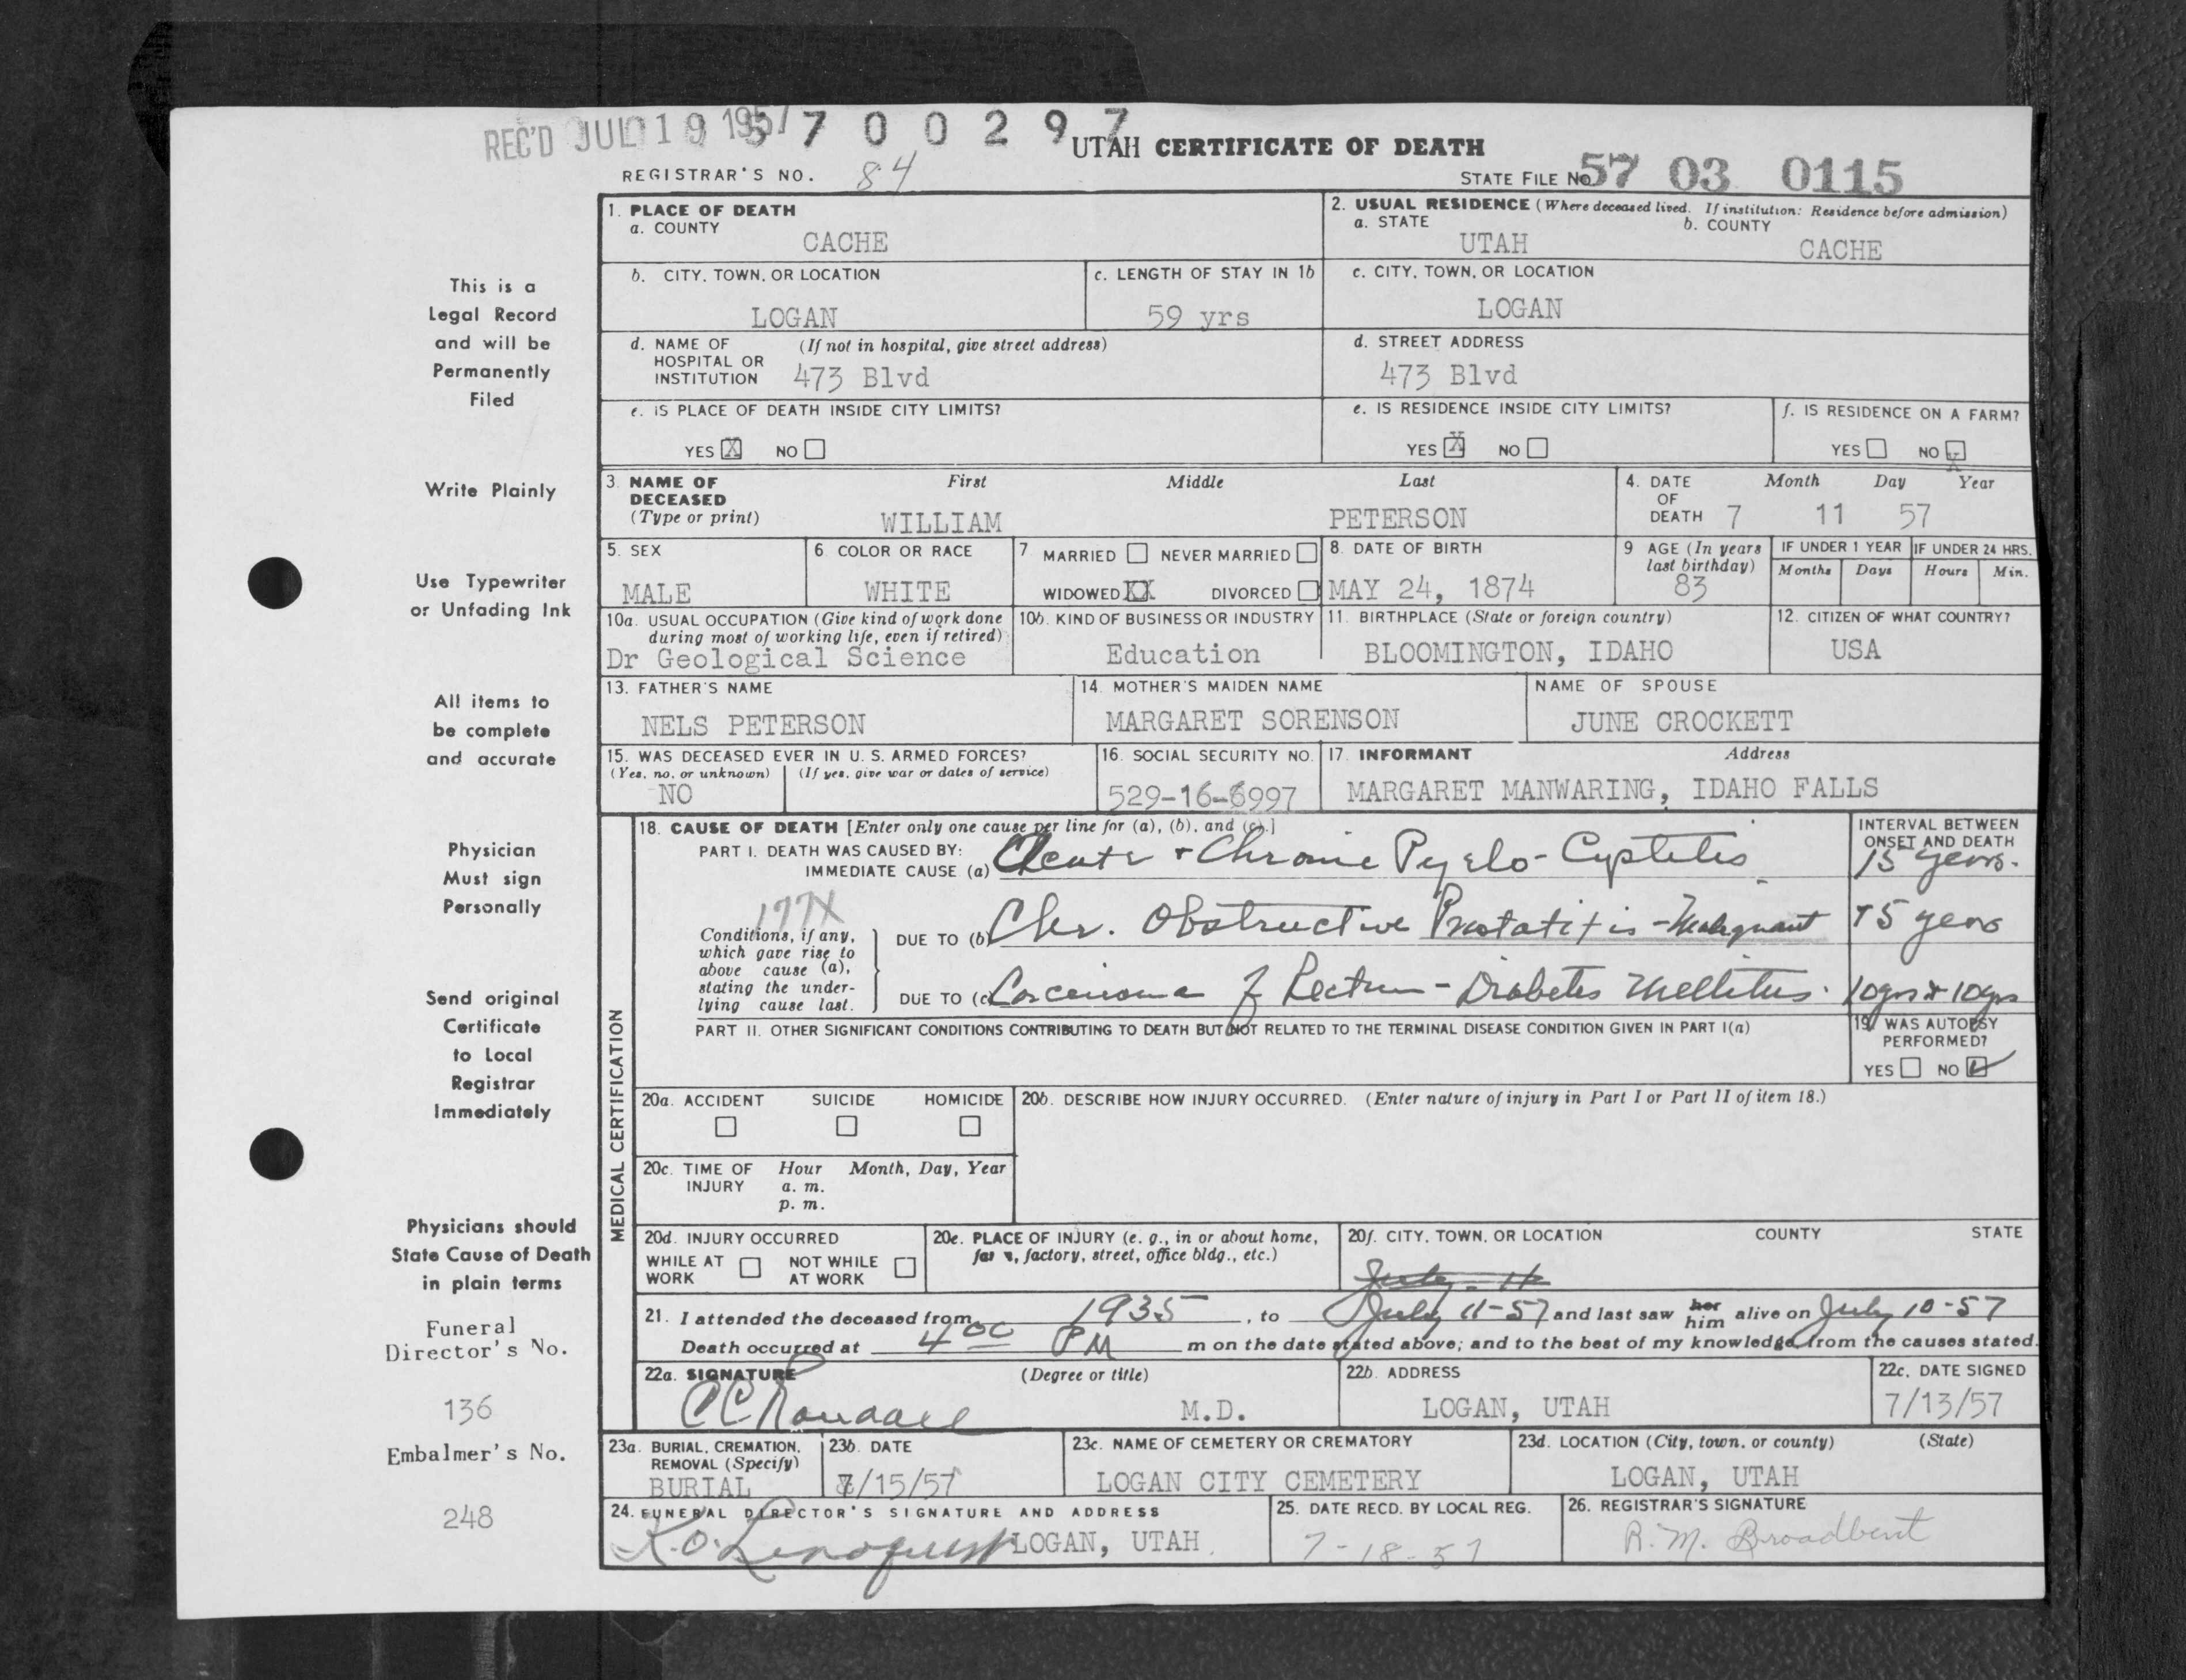 REC'D JUL 19 1957 7 0 0 2 9 7
UTAH CERTIFICATE OF DEATH
REGISTRAR'S NO. 84
STATE FILE NO. 57 03 0115
1. PLACE OF DEATH
a. COUNTY
CACHE
2. USUAL RESIDENCE (Where deceased lived. If institution: Residence before admission)
a. STATE b. COUNTY
UTAH CACHE
b. CITY, TOWN, OR LOCATION
LOGAN
c. LENGTH OF STAY IN 1b
59 yrs
c. CITY, TOWN, OR LOCATION
LOGAN
d. NAME OF (If not in hospital, give street address)
HOSPITAL OR
INSTITUTION 473 Blvd
d. STREET ADDRESS
473 Blvd
e. IS PLACE OF DEATH INSIDE CITY LIMITS?
YES X NO
e. IS RESIDENCE INSIDE CITY LIMITS?
YES X NO
f. IS RESIDENCE ON A FARM?
YES NO X
3. NAME OF DECEASED (Type or print)
First Middle Last
WILLIAM PETERSON
4. DATE OF DEATH
Month Day Year
7 11 57
5. SEX
MALE
6. COLOR OR RACE
WHITE
7. MARRIED NEVER MARRIED
WIDOWED XX DIVORCED
8. DATE OF BIRTH
MAY 24, 1874
9 AGE (In years last birthday)
83
IF UNDER 1 YEAR IF UNDER 24 HRS.
Months Days Hours Min.
10a. USUAL OCCUPATION (Give kind of work done
during most of working life, even if retired)
Dr Geological Science
10b. KIND OF BUSINESS OR INDUSTRY
Education
11. BIRTHPLACE (State or foreign country)
BLOOMINGTON, IDAHO
12. CITIZEN OF WHAT COUNTRY?
USA
13. FATHER'S NAME
NELS PETERSON
14. MOTHER'S MAIDEN NAME
MARGARET SORENSON
NAME OF SPOUSE
JUNE CROCKETT
15. WAS DECEASED EVER IN U. S. ARMED FORCES?
(Yes, no, or unknown) (If yes, give war or dates of service)
NO
16. SOCIAL SECURITY NO.
529-16-6997
17. INFORMANT Address
MARGARET MANWARING, IDAHO FALLS
MEDICAL CERTIFICATION
18. CAUSE OF DEATH [Enter only one cause per line for (a), (b), and (c).]
PART I. DEATH WAS CAUSED BY:
IMMEDIATE CAUSE (a) Acute + Chronic Pyelo-Cystitis
INTERVAL BETWEEN ONSET AND DEATH
15 years.
177X
Conditions, if any,
which gave rise to
above cause (a),
stating the under-
lying cause last.
DUE TO (b) Chr. Obstructive Prostatitis - Malignant
15 years
DUE TO (c) Carcinoma of Rectum - Diabetes Mellitus.
10yrs + 10yrs
PART II. OTHER SIGNIFICANT CONDITIONS CONTRIBUTING TO DEATH BUT NOT RELATED TO THE TERMINAL DISEASE CONDITION GIVEN IN PART I(a)
19. WAS AUTOPSY PERFORMED?
YES NO ✓
20a. ACCIDENT SUICIDE HOMICIDE
20b. DESCRIBE HOW INJURY OCCURRED. (Enter nature of injury in Part I or Part II of item 18.)
20c. TIME OF INJURY
Hour Month, Day, Year
a. m.
p. m.
20d. INJURY OCCURRED
WHILE AT WORK NOT WHILE AT WORK
20e. PLACE OF INJURY (e. g., in or about home,
farm, factory, street, office bldg., etc.)
20f. CITY, TOWN, OR LOCATION COUNTY STATE
July - 11
21. I attended the deceased from 1935, to July 11-57 and last saw her him alive on July 10-57
Death occurred at 4 00 PM m on the date stated above; and to the best of my knowledge, from the causes stated.
22a. SIGNATURE (Degree or title)
CC Randall M.D.
22b. ADDRESS
LOGAN, UTAH
22c. DATE SIGNED
7/13/57
23a. BURIAL, CREMATION, REMOVAL (Specify)
BURIAL
23b. DATE
7/15/57
23c. NAME OF CEMETERY OR CREMATORY
LOGAN CITY CEMETERY
23d. LOCATION (City, town, or county) (State)
LOGAN, UTAH
24. FUNERAL DIRECTOR'S SIGNATURE AND ADDRESS
K.O. Lindquist LOGAN, UTAH
25. DATE RECD. BY LOCAL REG.
7-18-57
26. REGISTRAR'S SIGNATURE
R.M. Broadbent
This is a
Legal Record
and will be
Permanently
Filed
Write Plainly
Use Typewriter
or Unfading Ink
All items to
be complete
and accurate
Physician
Must sign
Personally
Send original
Certificate
to Local
Registrar
Immediately
Physicians should
State Cause of Death
in plain terms
Funeral
Director's No.
136
Embalmer's No.
248